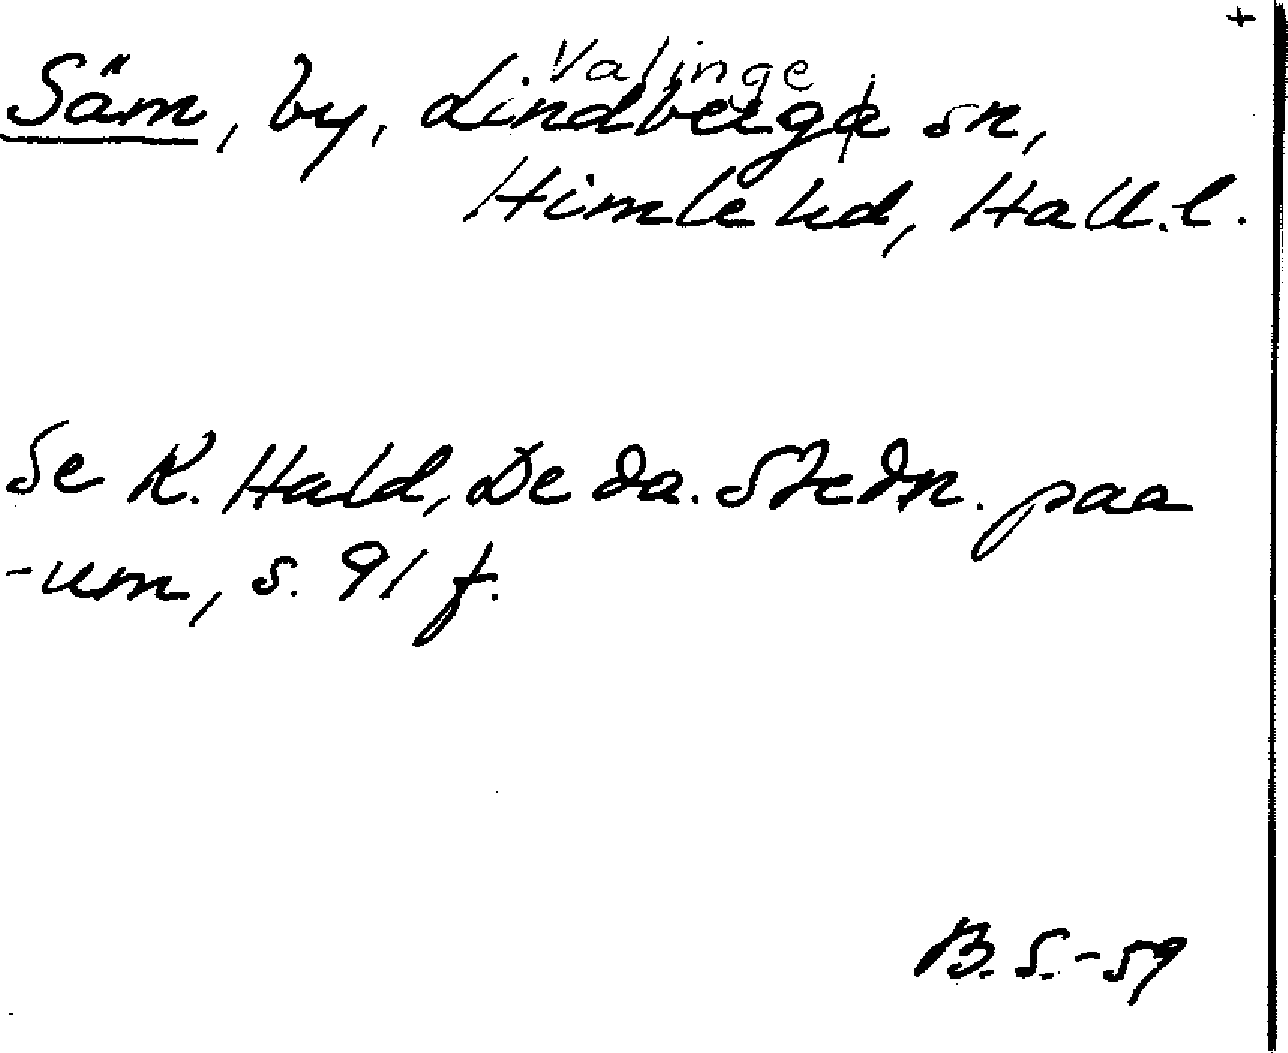 +
Valinge
Säm, by, Lindberga sn,
Himle hd, Hall.l.
Se K. Hald, De da. Stedn. paa
-um, s. 91 f.
B.S.-59